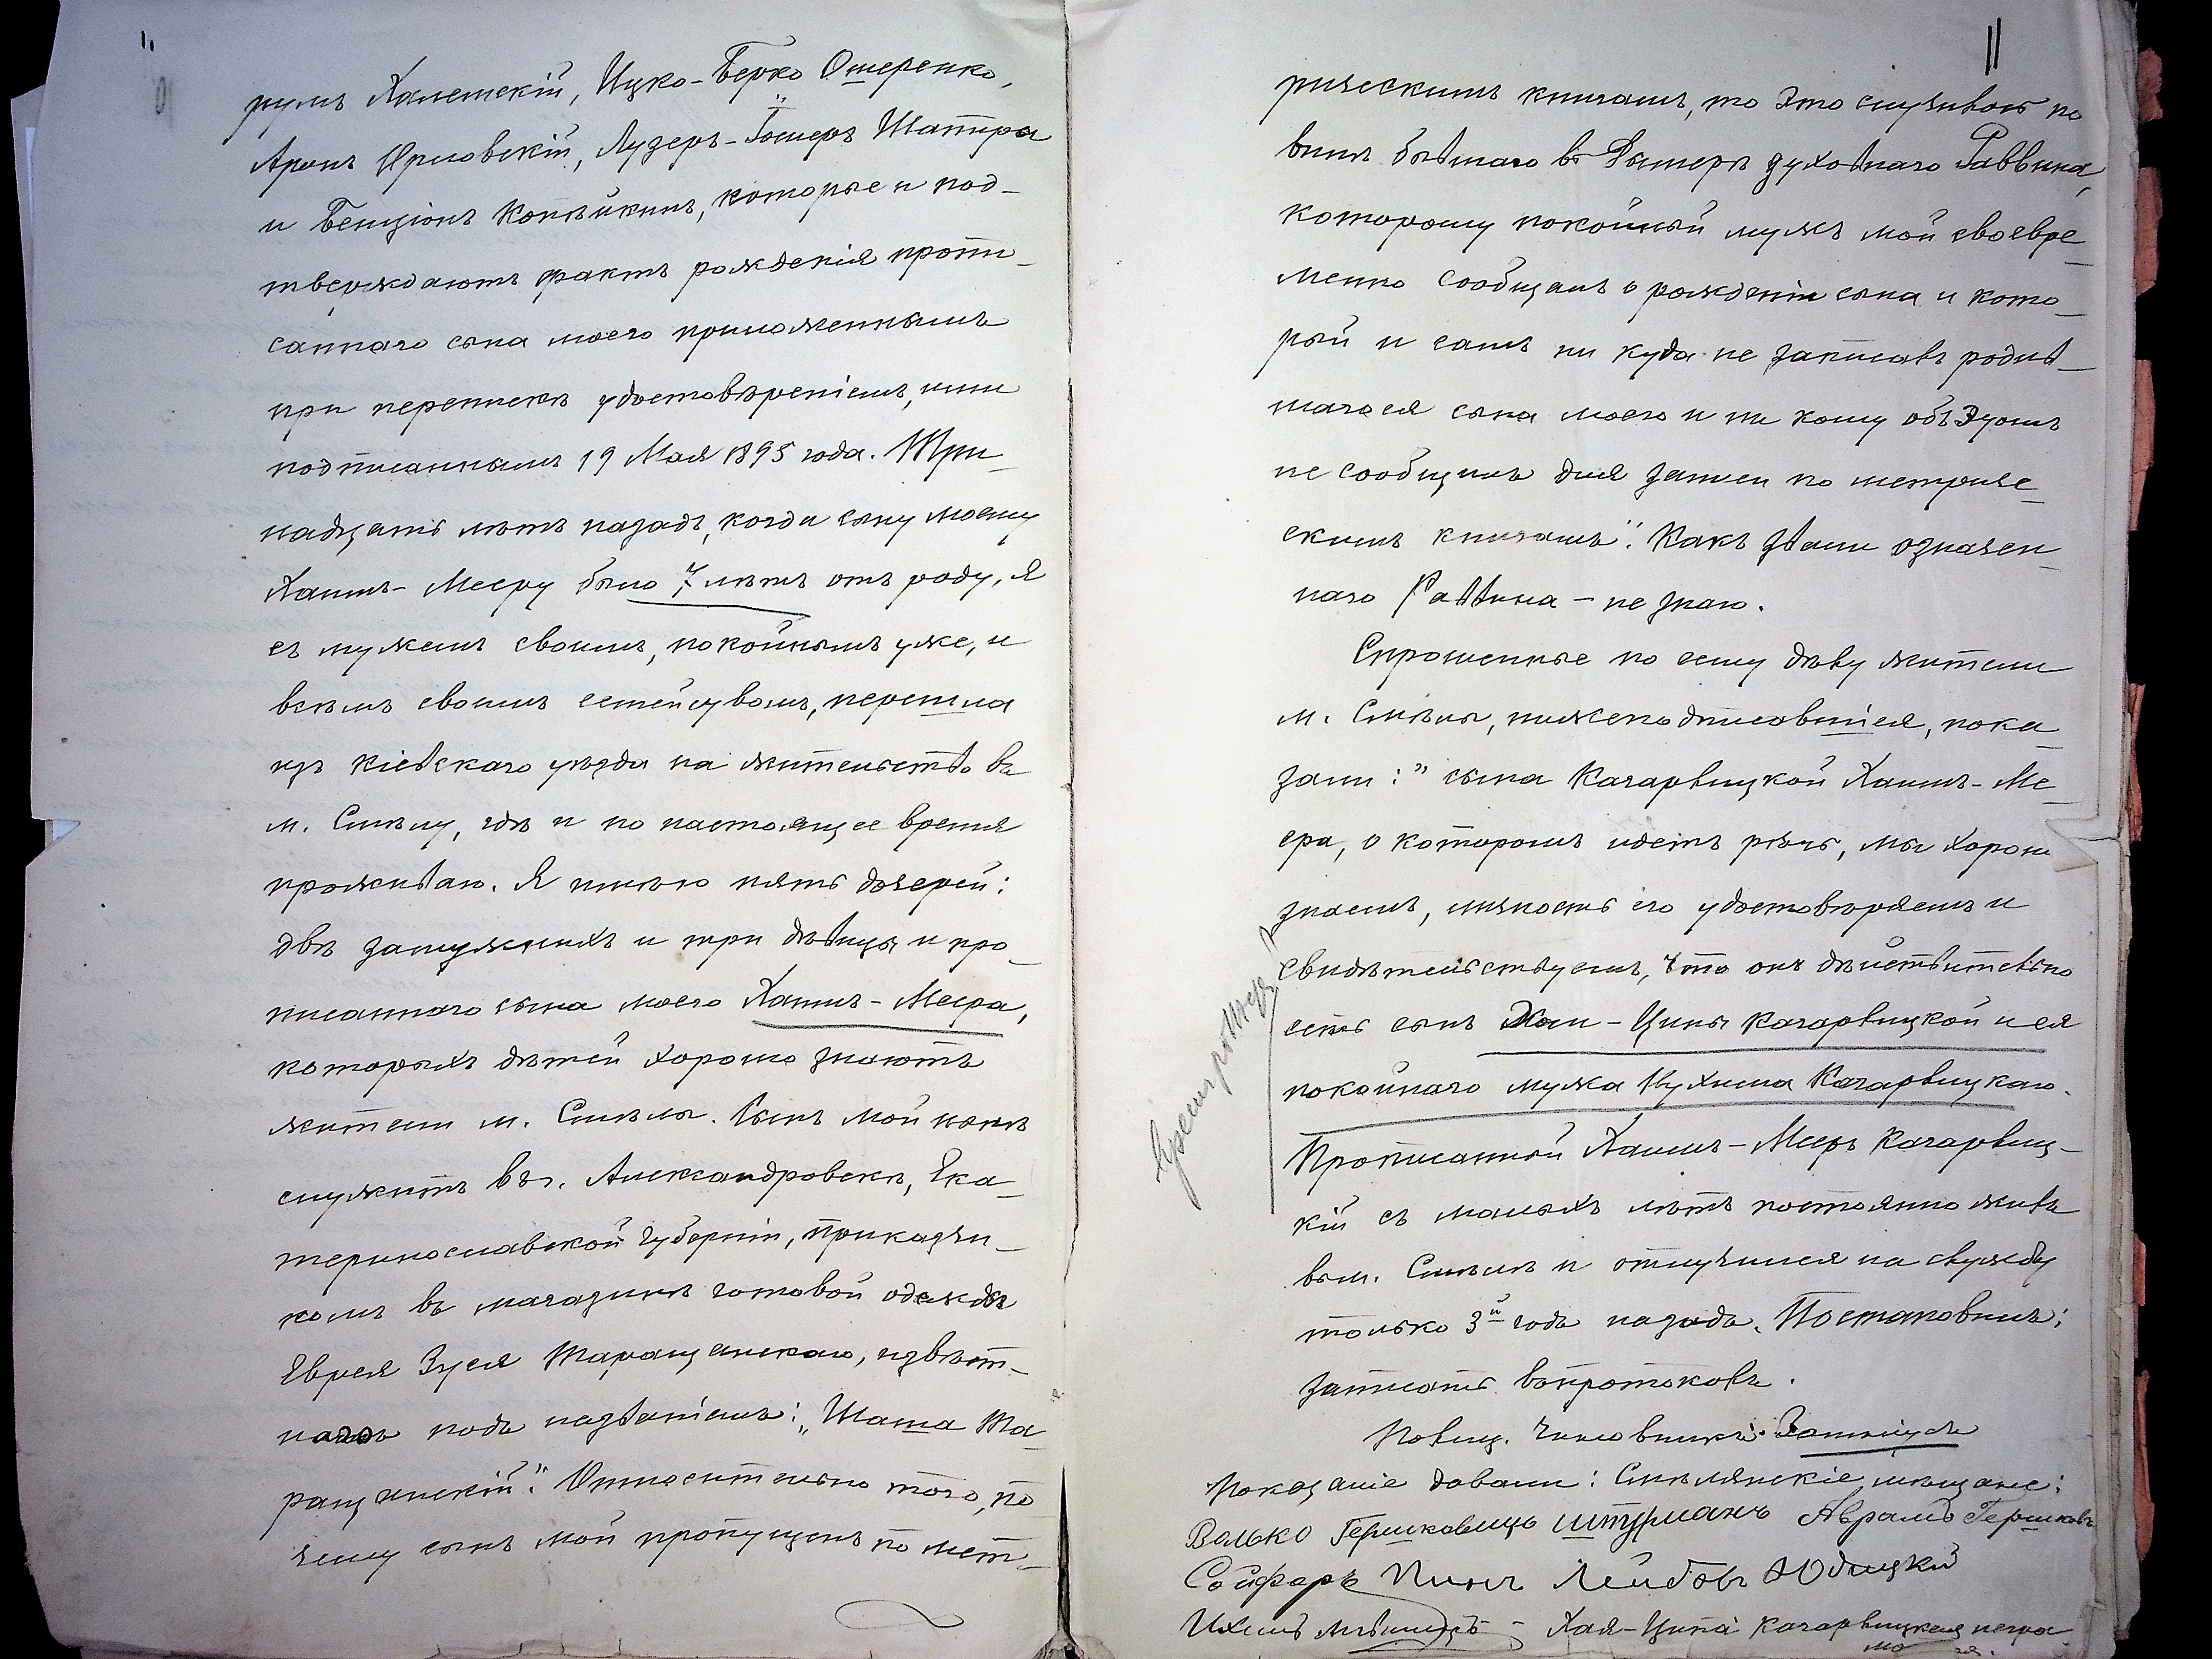 румъ Халемскій, Ицко-Берко Ошеренко,
Аронъ Орловскій, Лузеръ-Іосиеръ Шапиро
и Бенціонъ Копѣйкинъ, которые и под-
тверждаютъ фактъ рожденія пропи-
саннаго сына моего приложеннымъ
при перепискѣ удостовѣреніемъ, ими
подписаннымъ 19 Мая 1895 года. Три-
надцать лѣтъ назадъ, когда сыну моему
Хаимъ-Мееру было 7 лѣтъ отъ роду, я
съ мужемъ своимъ, покойнымъ уже, и
всѣмъ своимъ семействомъ, перешла
изъ Кіевскаго уѣзда на жительство въ
м. Смѣлу, гдѣ и по настоящее время
проживаю. Я имѣю пять дочерей:
двѣ замужнихъ и три дѣвицы и про-
писаннаго сына моего Хаимъ-Меера,
которыхъ дѣтей хорошо знаютъ
жители м. Смѣлы. Сынъ мой нынѣ
служитъ въ г. Александровскѣ, Ека-
теринославской губерніи, приказчи-
комъ въ магазинѣ готовой одежды
Еврея Зуся Таращанскаго, извѣст-
наго подъ названіемъ: „Шаша Та-
ращанскій". Относительно того, по
чему сынъ мой пропущенъ по мет-
11
рическимъ книгамъ, то это случилось по
винѣ бывшаго въ духовнаго Раввина,
которому покойный мужъ мой своевре-
менно сообщалъ о рожденіи сына и кото-
рый и самъ ни куда не записавъ родив-
шагося сына моего и ни кому объ этомъ
не сообщилъ для записи по метриче-
скимъ книгамъ". Какъ звали означен-
наго Раввина - не знаю.
Спрошенные по сему дѣлу жители
м. Смѣлы, нижеподписавшіеся, пока-
зали: „сына Качарвицкой Хаимъ-Ме-
ера, о которомъ идетъ рѣчь, мы хорошо
знаемъ, личность его удостовѣряемъ и
свидѣтельствуемъ, что онъ дѣйствительно
есть сынъ Хаи-Ципы Качарвицкой и ея
покойнаго мужа Нухима Качарвицкаго.
Прописанный Хаимъ-Мееръ Качарвиц-
кій съ малыхъ лѣтъ постоянно живъ
въ м. Смѣлѣ и отлучился на службу
только 3й годъ назадъ. Постановилъ:
записать въ протоколъ.
Полиц. Чиновникъ
Показаніе давали: Смѣлянскіе мѣщане:
Волько Гершковицъ Штурманъ Аврамъ Гершковъ
Сойферъ Пинъ Лейбовъ Юдицкій
Ихилъ - Хая-Ципа Качарвицкая негра
мо ная.